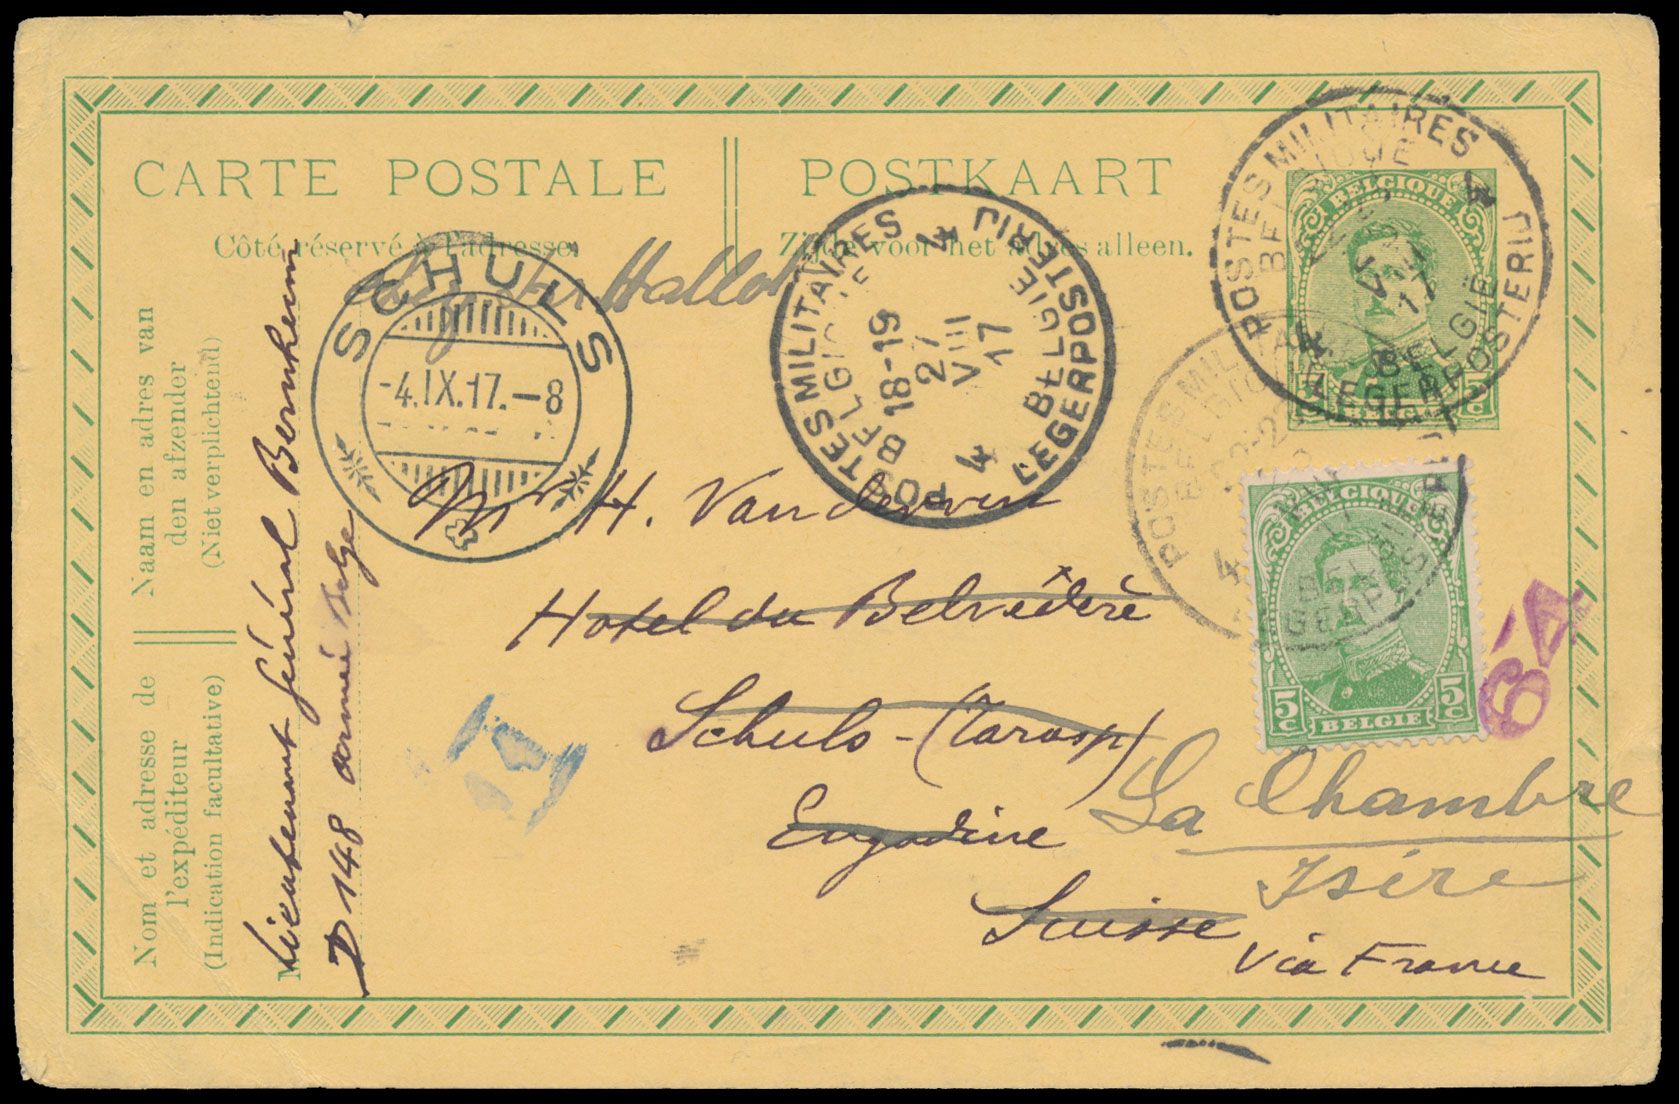 CARTE POSTALE
POSTKAART
Côté réservé à l'adresse.
Zijde voor het adres alleen.
Hallot
SCHULS
-4.IX.17.-8
POSTES MILITAIRES
BELGIQUE
4
18-19
27
VIII
17
4
BELGIE
LEGERPOSTERIJ
POSTES MILITAIRES
4
17
BELGIË
LEGERPOSTERIJ
BELGIQUE
5c
BELGIË
POSTES MILIT
4
BELGIQUE
5c 5c
BELGIE
Naam en adres van
den afzender
(Niet verplichtend)
Nom et adresse de
l'expéditeur
(Indication facultative)
Lieutenant Général Bernheim
D 148 armée belge
Mr H. Vanderven
Hotel du Belvédère
Schuls-(Tarasp)
Engadine
Suisse
Via France
La Chambre
Isère